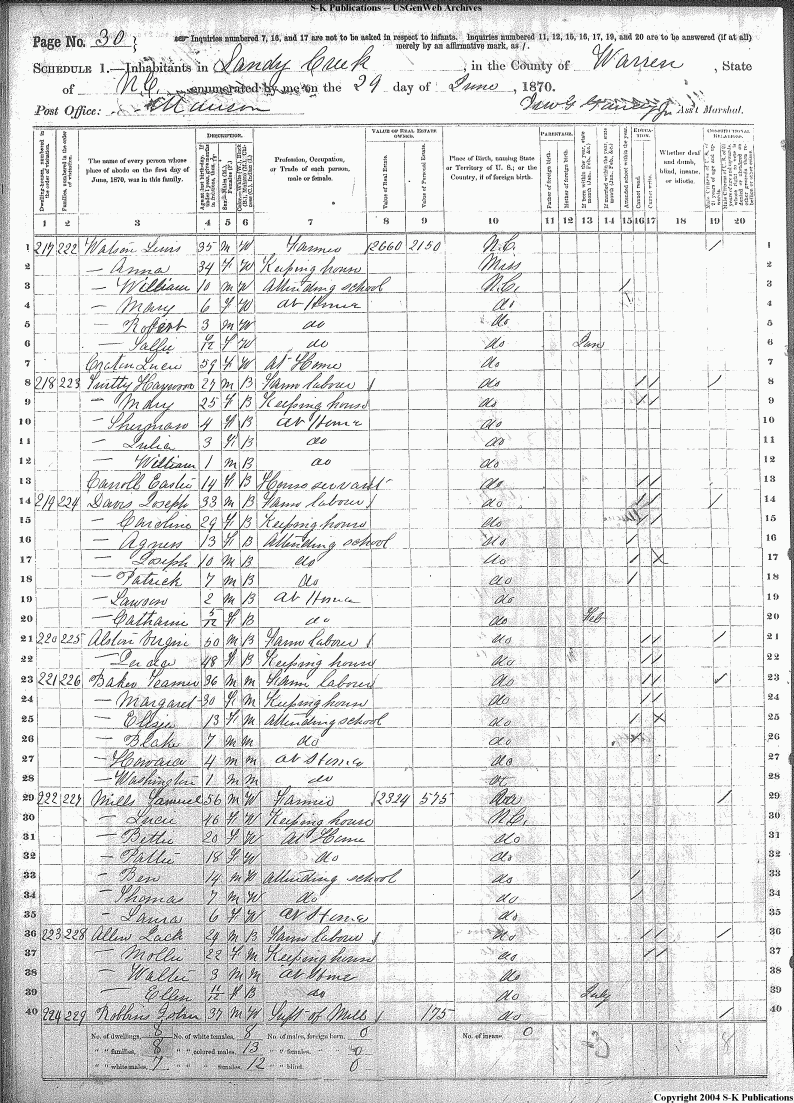 S-K Publications -- USGenWeb Archives
Page No. 30
Inquiries numbered 7, 16, and 17 are not to be asked in respect to infants. Inquiries numbered 11, 12, 15, 16, 17, 19, and 20 are to be answered (if at all) merely by an affirmative mark, as /.
SCHEDULE 1.—Inhabitants in Sandy Creek, in the County of Warren, State
of N.C. enumerated by me on the 29 day of June, 1870.
Post Office: Manson Ass't Marshal.
DESCRIPTION. VALUE OF REAL ESTATE OWNED. PARENTAGE. EDUCATION. CONSTITUTIONAL RELATIONS.
Dwelling-houses, numbered in the order of visitation.
Families, numbered in the order of visitation.
The name of every person whose place of abode on the first day of June, 1870, was in this family.
Profession, Occupation, or Trade of each person, male or female.
Value of Real Estate.
Value of Personal Estate.
Place of Birth, naming State or Territory of U. S.; or the Country, if of foreign birth.
Father of foreign birth.
Mother of foreign birth.
Attended school within the year.
Cannot read.
Cannot write.
Whether deaf and dumb, blind, insane, or idiotic.
1 2 3 4 5 6 7 8 9 10 11 12 13 14 15 16 17 18 19 20
1 217 222 Watson Lewis 35 M W Farmer 2660 2150 N.C. / 1
2 — Anna 34 F W Keeping house Miss 2
3 — William 10 M W Attending school N.C. / 3
4 — Mary 6 F W At Home do 4
5 — Robert 3 M W do do 5
6 — Sallie F W do do Jan 6
7 Lucie 59 F W At Home do 7
8 218 223 27 M B Farm labour do / / / 8
9 — Mary 25 F B Keeping house do / / 9
10 — Sherman 4 B At Home do 10
11 — Julia 3 F B do do 11
12 — William 1 M B do do 12
13 Carroll 14 F B House servant do / / 13
14 219 224 Davis Joseph 33 M B Farm labour do / / / 14
15 — Caroline 29 F B Keeping house do / / 15
16 — Agness 13 F B Attending school do / 16
17 — Joseph 10 M B do do / X 17
18 — Patrick 7 M B do do / 18
19 — Lawson 2 M B At Home do 19
20 — Catharine 5/12 F B do do Feb 20
21 220 225 Alston 50 M B Farm labour do / / / 21
22 48 F B Keeping house do / / 22
23 221 226 Baker 36 M M Farm labour do / / / 23
24 — Margaret 30 F M Keeping house do / / 24
25 — 13 F M Attending school do / X 25
26 — Blake 7 M M do do X 26
27 — Howard 4 M M At Home do 27
28 — Washington 1 M M do do 28
29 222 227 Mills Samuel 56 M W Farmer 2324 575 Va / 29
30 — Lucie 46 F W Keeping house N.C. 30
31 — Bettie 20 F W At Home do 31
32 — Pattie 18 F W do do 32
33 — Ben 14 M W Attending school do / 33
34 — Thomas 7 M W do do / 34
35 — Laura 6 F W At Home do 35
36 223 228 Allen Zack 29 M B Farm labour do / / / 36
37 — Mollie 22 F M Keeping house do / / 37
38 — Walter 3 M M At Home do 38
39 — Ellen 11/12 F B do do July 39
40 224 229 Robbins John 37 M W Supt of Mill 175 do / 40
No. of dwellings, 8 No. of white females, 8 No. of males, foreign born, 0 No. of insane, 0
" " families, 8 " " colored males, 13 " " females, " " 0
" " white males, 7 " " " females, 12 " " blind, 0
Copyright 2004 S-K Publications